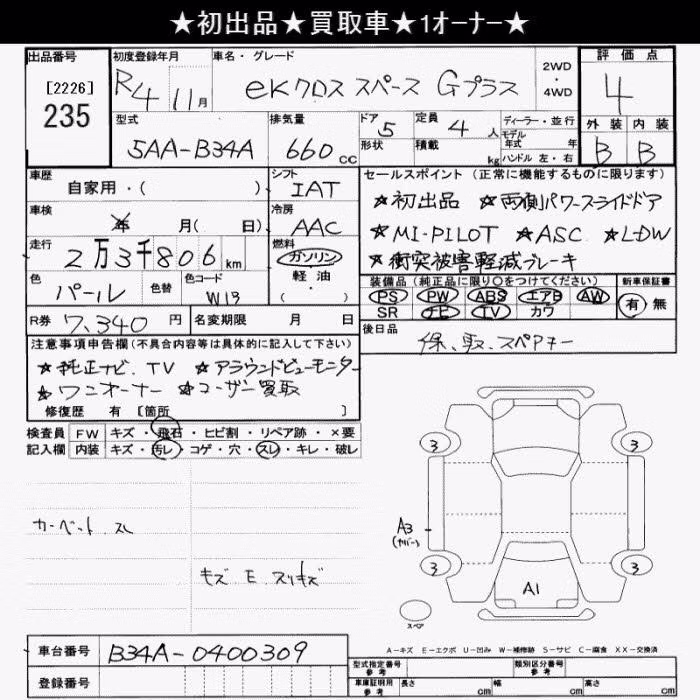 ★初出品★買取車★1オーナー★
出品番号
[2226]
235
初度登録年月
R4 11月
車名・グレード
eKクロス スペース Gプラス
2WD
・
4WD
評価点
4
外装 内装
B B
型式
5AA-B34A
排気量
660cc
ドア 5
形状
定員 4 人
積載 kg
ディーラー・並行
モデル
年式 年
ハンドル 左・右
車歴
自家用・( )
シフト
IAT
車検
年 月( 日)
冷房
AAC
走行
2万3千806km
燃料
ガソリン
軽油・
( )
色
パール
色替
色コード
W13
R券 7,340円
名変期限 月 日
セールスポイント (正常に機能するものに限ります)
★初出品 ★両側パワースライドドア
★MI-PILOT ★ASC ★LDW
★衝突被害軽減ブレーキ
装備品 (純正品に限り○をつけてください)
PS PW ABS エアB AW
SR ナビ TV カワ
新車保証書
有 無
後日品
保、取、スペアキー
注意事項申告欄(不具合内容等は具体的に記入して下さい)
★純正ナビ、TV ★アラウンドビューモニター
★ワンオーナー ★ユーザー買取
修復歴 有 [箇所 ]
検査員
記入欄
FW キズ・飛石・ヒビ割・リペア跡・×要
内装 キズ・汚レ・コゲ・穴・スレ・キレ・破レ
カーペット スレ
キズ E スリキズ
3 3
A3
(カバー)
3 3
A1
スペア
A-キズ E-エクボ U-凹み W-補修跡 S-サビ C-腐食 XX-交換済
車台番号 B34A-0400309
登録番号
型式指定番号
参考
類別区分番号
参考
車庫証明用
参考
長さ cm 幅 cm 高さ cm